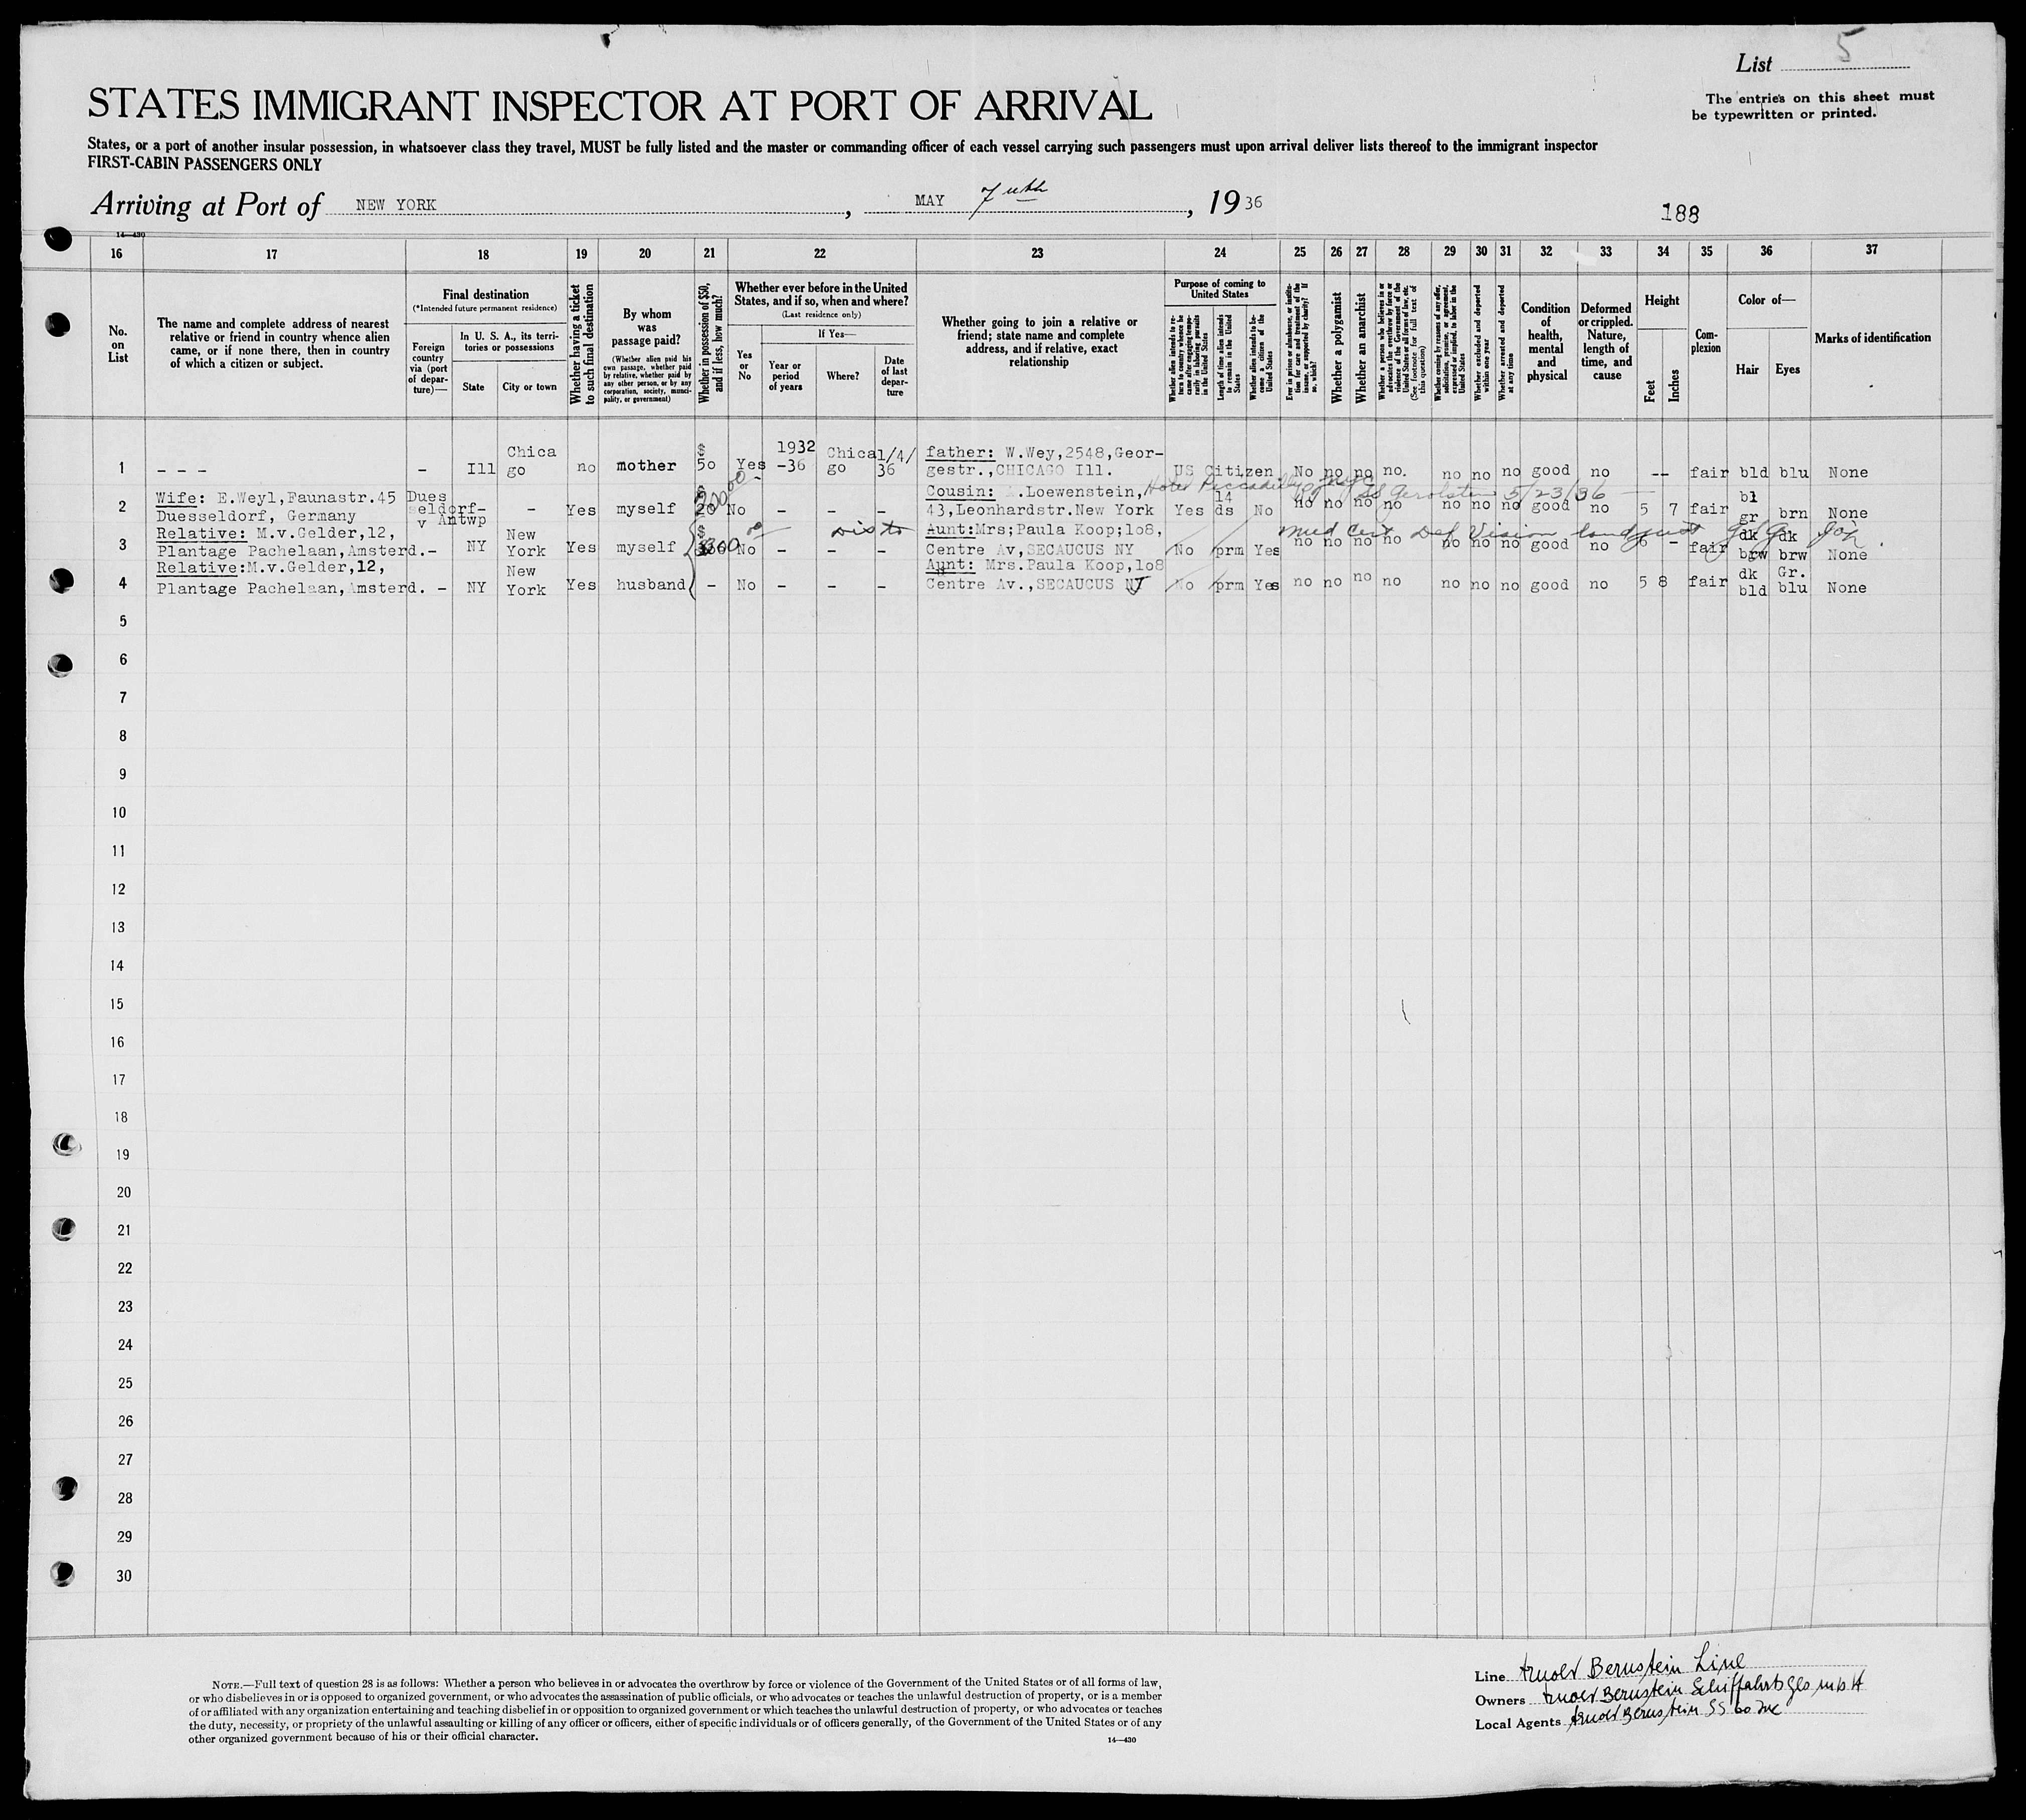 List 5
STATES IMMIGRANT INSPECTOR AT PORT OF ARRIVAL
The entries on this sheet must
be typewritten or printed.
States, or a port of another insular possession, in whatsoever class they travel, MUST be fully listed and the master or commanding officer of each vessel carrying such passengers must upon arrival deliver lists thereof to the immigrant inspector
FIRST-CABIN PASSENGERS ONLY
Arriving at Port of NEW YORK, MAY 7, 1936
188
14—430
16 17 18 19 20 21 22 23 24 25 26 27 28 29 30 31 32 33 34 35 36 37
No.
on
List
The name and complete address of nearest
relative or friend in country whence alien
came, or if none there, then in country
of which a citizen or subject.
Final destination
(*Intended future permanent residence)
Foreign
country
via (port
of depar-
ture)—
In U. S. A., its terri-
tories or possessions
State
City or town
Whether having a ticket
to such final destination
By whom
was
passage paid?
(Whether alien paid his
own passage, whether paid
by relative, whether paid by
any other person, or by any
corporation, society, munici-
pality, or government)
Whether in possession of $50,
and if less, how much?
Whether ever before in the United
States, and if so, when and where?
(Last residence only)
Yes
or
No
If Yes—
Year or
period
of years
Where?
Date
of last
depar-
ture
Whether going to join a relative or
friend; state name and complete
address, and if relative, exact
relationship
Purpose of coming to
United States
Whether alien intends to re-
turn to country whence he
came after engaging tempo-
rarily in laboring pursuits
in the United States
Length of time alien intends
to remain in the United
States
Whether alien intends to be-
come a citizen of the
United States
Ever in prison or almshouse, or institu-
tion for care and treatment of the
insane, or supported by charity? If
so, which?
Whether a polygamist
Whether an anarchist
Whether a person who believes in or
advocates the overthrow by force or
violence of the Government of the
United States or all forms of law, etc.
(See footnote for full text of
this question)
Whether coming by reasons of any offer,
solicitation, promise, or agreement,
expressed or implied, to labor in the
United States
Whether excluded and deported
within one year
Whether arrested and deported
at any time
Condition
of
health,
mental
and
physical
Deformed
or crippled.
Nature,
length of
time, and
cause
Height
Feet
Inches
Com-
plexion
Color of—
Hair
Eyes
Marks of identification
1 - - - - Ill Chica go no mother $ 50 Yes 1932 -36 Chica go 1/4/ 36 father: W.Wey,2548,Geor- gestr.,CHICAGO Ill. US Citizen No no no no. no no no good no -- fair bld blu None
Hotel Piccadilly NYC SS Gerolstein 5/23/36
2 Wife: E.Weyl,Faunastr.45 Duesseldorf, Germany Dues seldorf- v Antwp - Yes myself $ 20 200 No - - - Cousin: .Loewenstein, 43,Leonhardstr.New York Yes 14 ds No no no no no no no no good no 5 7 fair bl gr brn None
Med Cert Def Vision
3 Relative: M.v.Gelder,12, Plantage Pachelaan,Amsterd.- NY New York Yes myself $ 300 No - - - Aunt:Mrs;Paula Koop;1o8, Centre Av,SECAUCUS NY No prm Yes no no no no no no no good no 6 - fair dk brw dk brw None
4 Relative:M.v.Gelder,12, Plantage Pachelaan,Amsterd. - NY New York Yes husband - No - - - Aunt: Mrs.Paula Koop,1o8 Centre Av.,SECAUCUS NJ No prm Yes no no no no no no no good no 5 8 fair dk bld Gr. blu None
5
6
7
8
9
10
11
12
13
14
15
16
17
18
19
20
21
22
23
24
25
26
27
28
29
30
NOTE.—Full text of question 28 is as follows: Whether a person who believes in or advocates the overthrow by force or violence of the Government of the United States or of all forms of law,
or who disbelieves in or is opposed to organized government, or who advocates the assassination of public officials, or who advocates or teaches the unlawful destruction of property, or is a member
of or affiliated with any organization entertaining and teaching disbelief in or opposition to organized government or which teaches the unlawful destruction of property, or who advocates or teaches
the duty, necessity, or propriety of the unlawful assaulting or killing of any officer or officers, either of specific individuals or of officers generally, of the Government of the United States or of any
other organized government because of his or their official character.
14—430
Line Arnold Bernstein Line
Owners Arnold Bernstein Schiffahrts Ges m b H
Local Agents Arnold Bernstein SS Co Inc